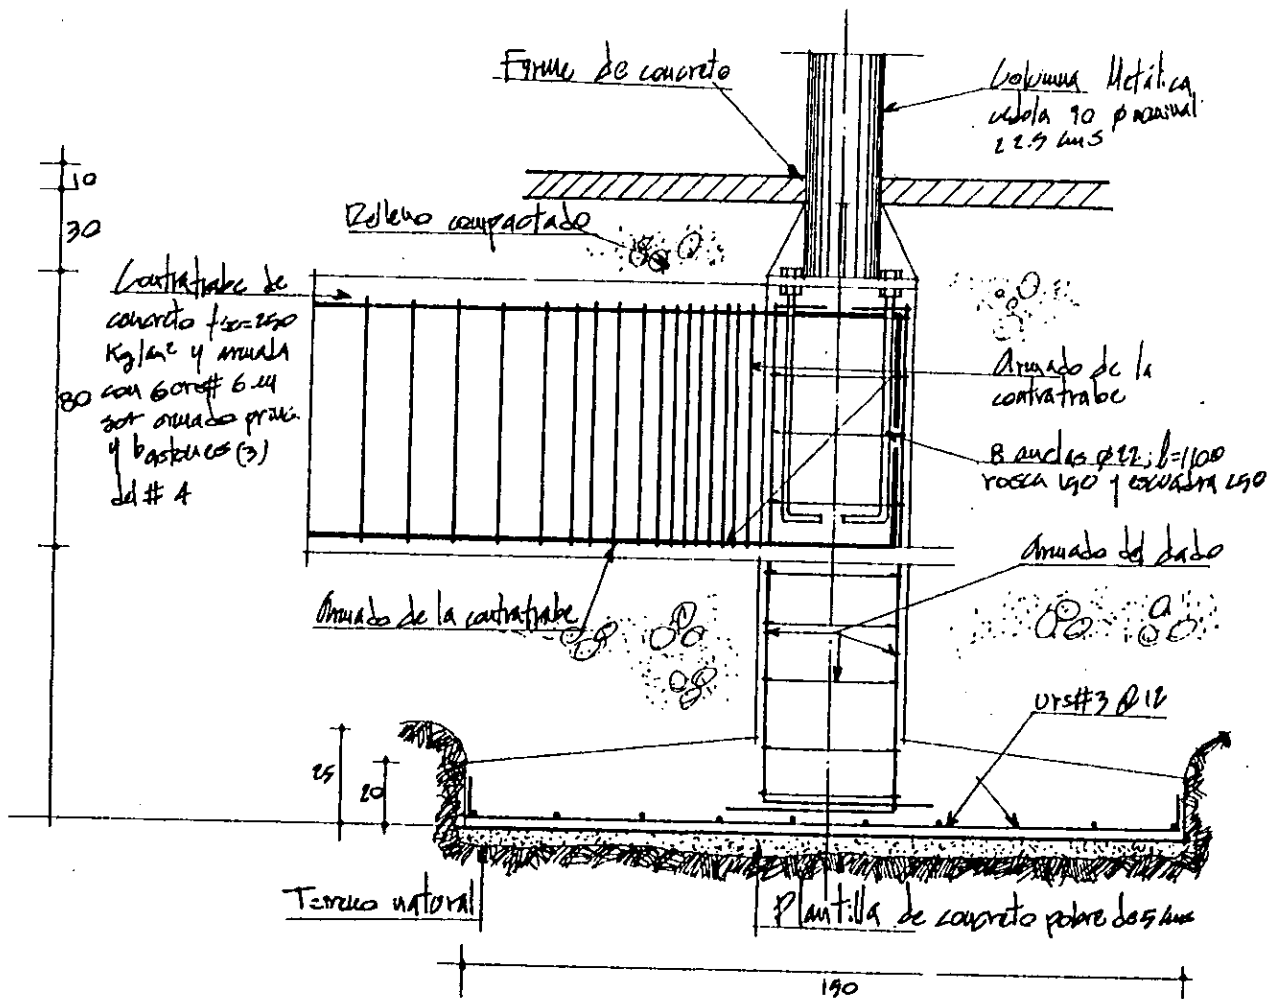 Firme de concreto
Columna Metálica
cedola 90 ø nominal
22.5 cms
10
30
Relleno compactado
Contratrabe de
concreto f'c=250
Kg/cm² y armada
80
con 6 # 6 en
armado
y bastones (3)
del # 4
Armado de la
contratrabe
8 anclas ø22; l=1100
rosca 150 y escuadra 250
Armado del dado
Armado de la contratrabe
vrs#3 @ 12
25
20
Terreno natural
Plantilla de concreto pobre de 5 cms
150